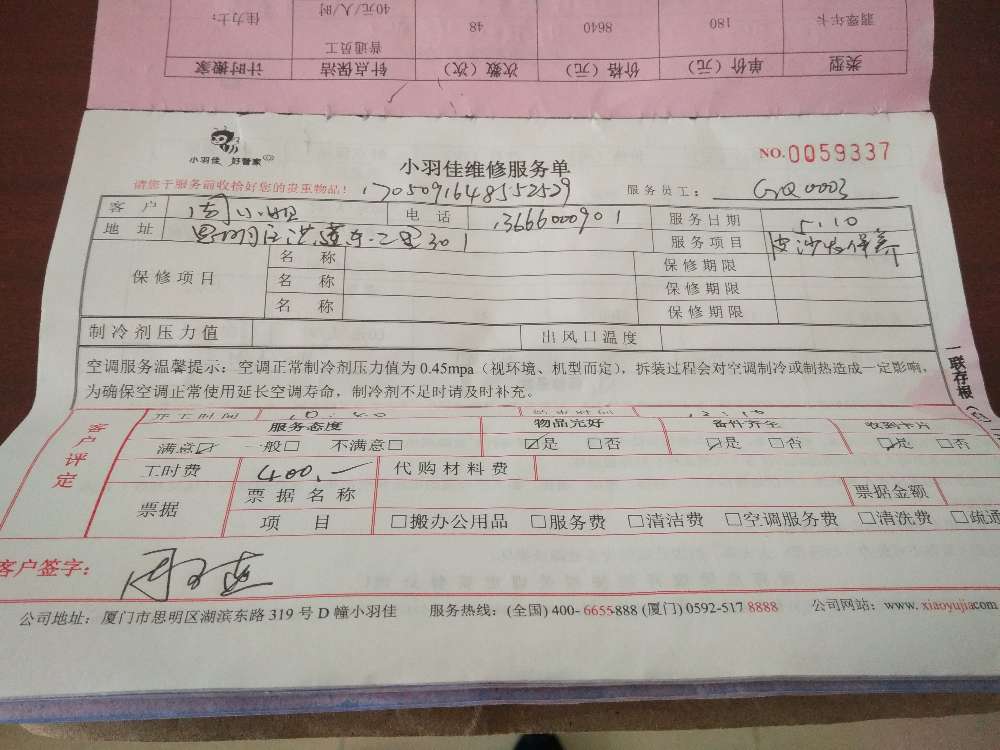 类型 单价（元） 价格（元） 次数（次） 针点保洁 计时搬家
翡翠年卡 180 8640 48 普通员工 40元/人/时 佳力士：
小羽佳 好管家
小羽佳维修服务单
NO.0059337
请您于服务前收拾好您的贵重物品！ 1705091648552529 服务员工： GXQ0003
客 户 周小姐 电 话 13666000901 服务日期 5.10
地 址 思明区洪莲东二里301 服务项目 皮沙发保养
保修项目 名 称 保修期限
名 称 保修期限
名 称 保修期限
制冷剂压力值 出风口温度
空调服务温馨提示：空调正常制冷剂压力值为0.45mpa（视环境、机型而定），拆装过程会对空调制冷或制热造成一定影响，
为确保空调正常使用延长空调寿命，制冷剂不足时请及时补充。
一联存根
客户评定
开工时间
服务态度 物品完好 备件齐全 收到卡片
满意☑ 一般□ 不满意□ ☑是 □否 ☑是 □否 ☑是 □否
工时费 400.— 代购材料费
票据 票据名称 票据金额
项 目 □搬办公用品 □服务费 □清洁费 □空调服务费 □清洗费 □疏通
客户签字：
公司地址：厦门市思明区湖滨东路319号D幢小羽佳 服务热线：(全国) 400-6655-888 (厦门) 0592-517 8888 公司网站：www. xiaoyujia.com